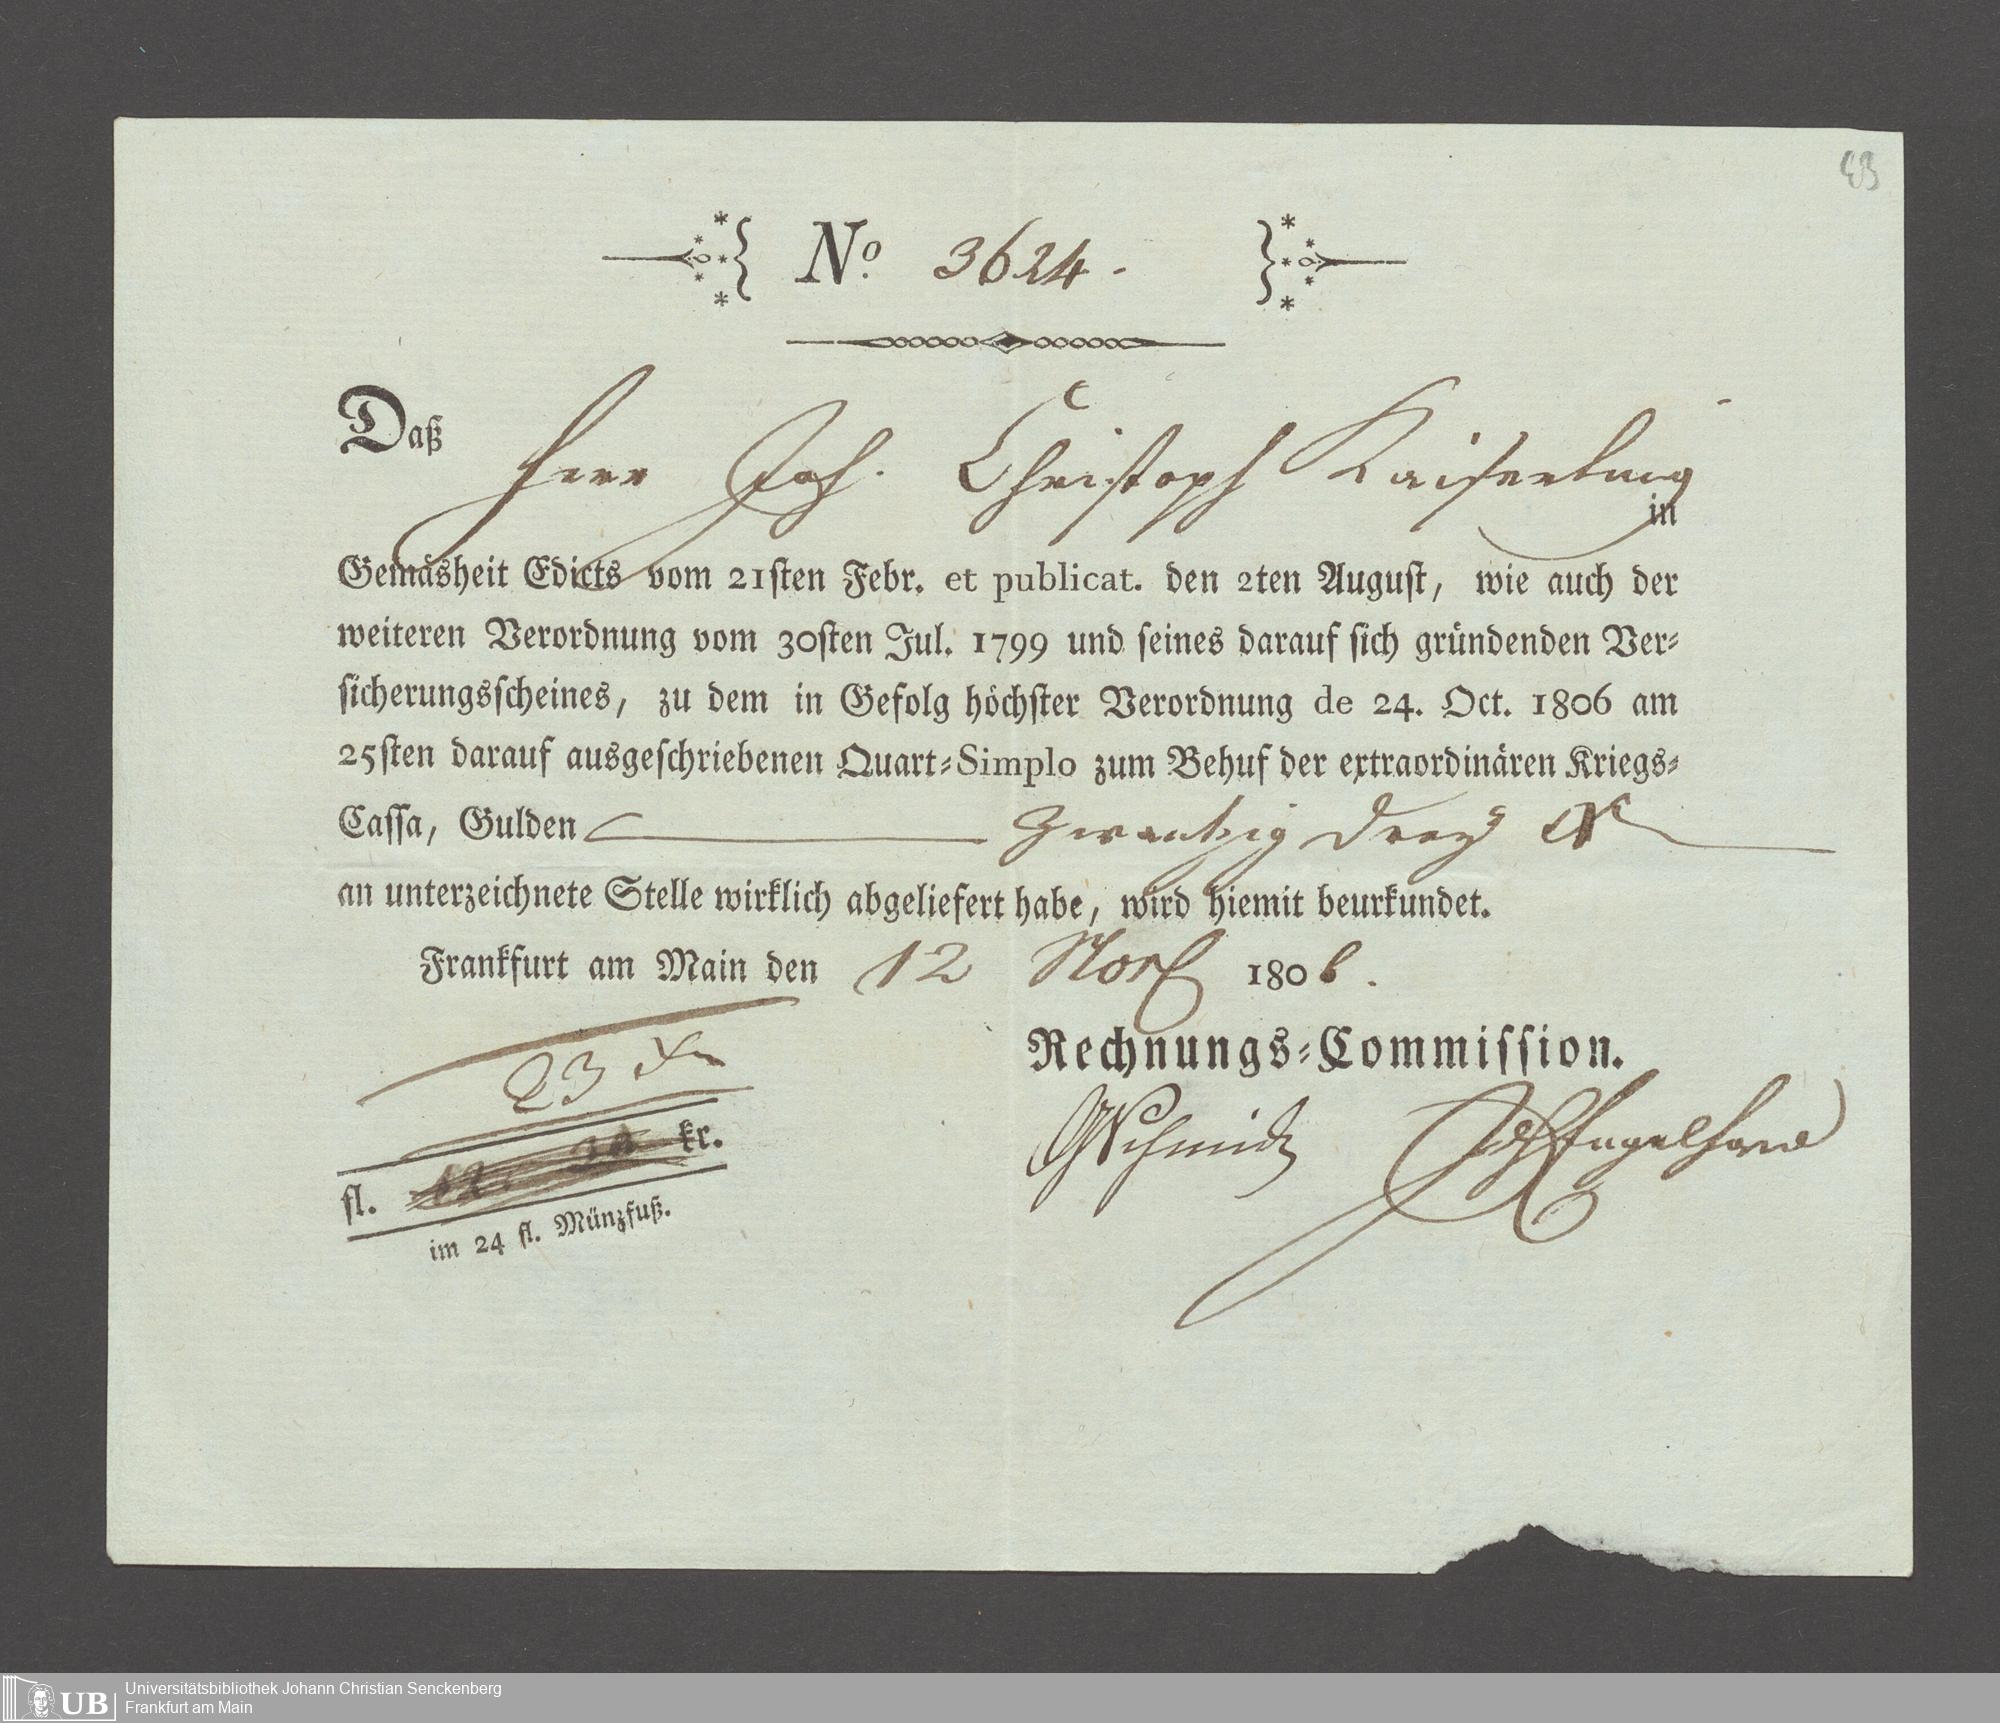 43
No. 3624.
Daß Herr Joh. Christoph Kaiser
in
Gemäsheit Edicts vom 21sten Febr. et publicat. den 2ten August, wie auch der
weiteren Verordnung vom 30sten Jul. 1799 und seines darauf sich gründenden Ver-
sicherungsscheines, zu dem in Gefolg höchster Verordnung de 24. Oct. 1806 am
25sten darauf ausgeschriebenen Quart-Simplo zum Behuf der extraordinären Kriegs-
Cassa, Gulden Zwantzig Drey
an unterzeichnete Stelle wirklich abgeliefert habe, wird hiemit beurkundet.
Frankfurt am Main den 12 Nov 1806.
Rechnungs-Commission.
23
GSchmidt Engelhard
fl. kr.
im 24 fl. Münzfuß.
UB
Universitätsbibliothek Johann Christian Senckenberg
Frankfurt am Main